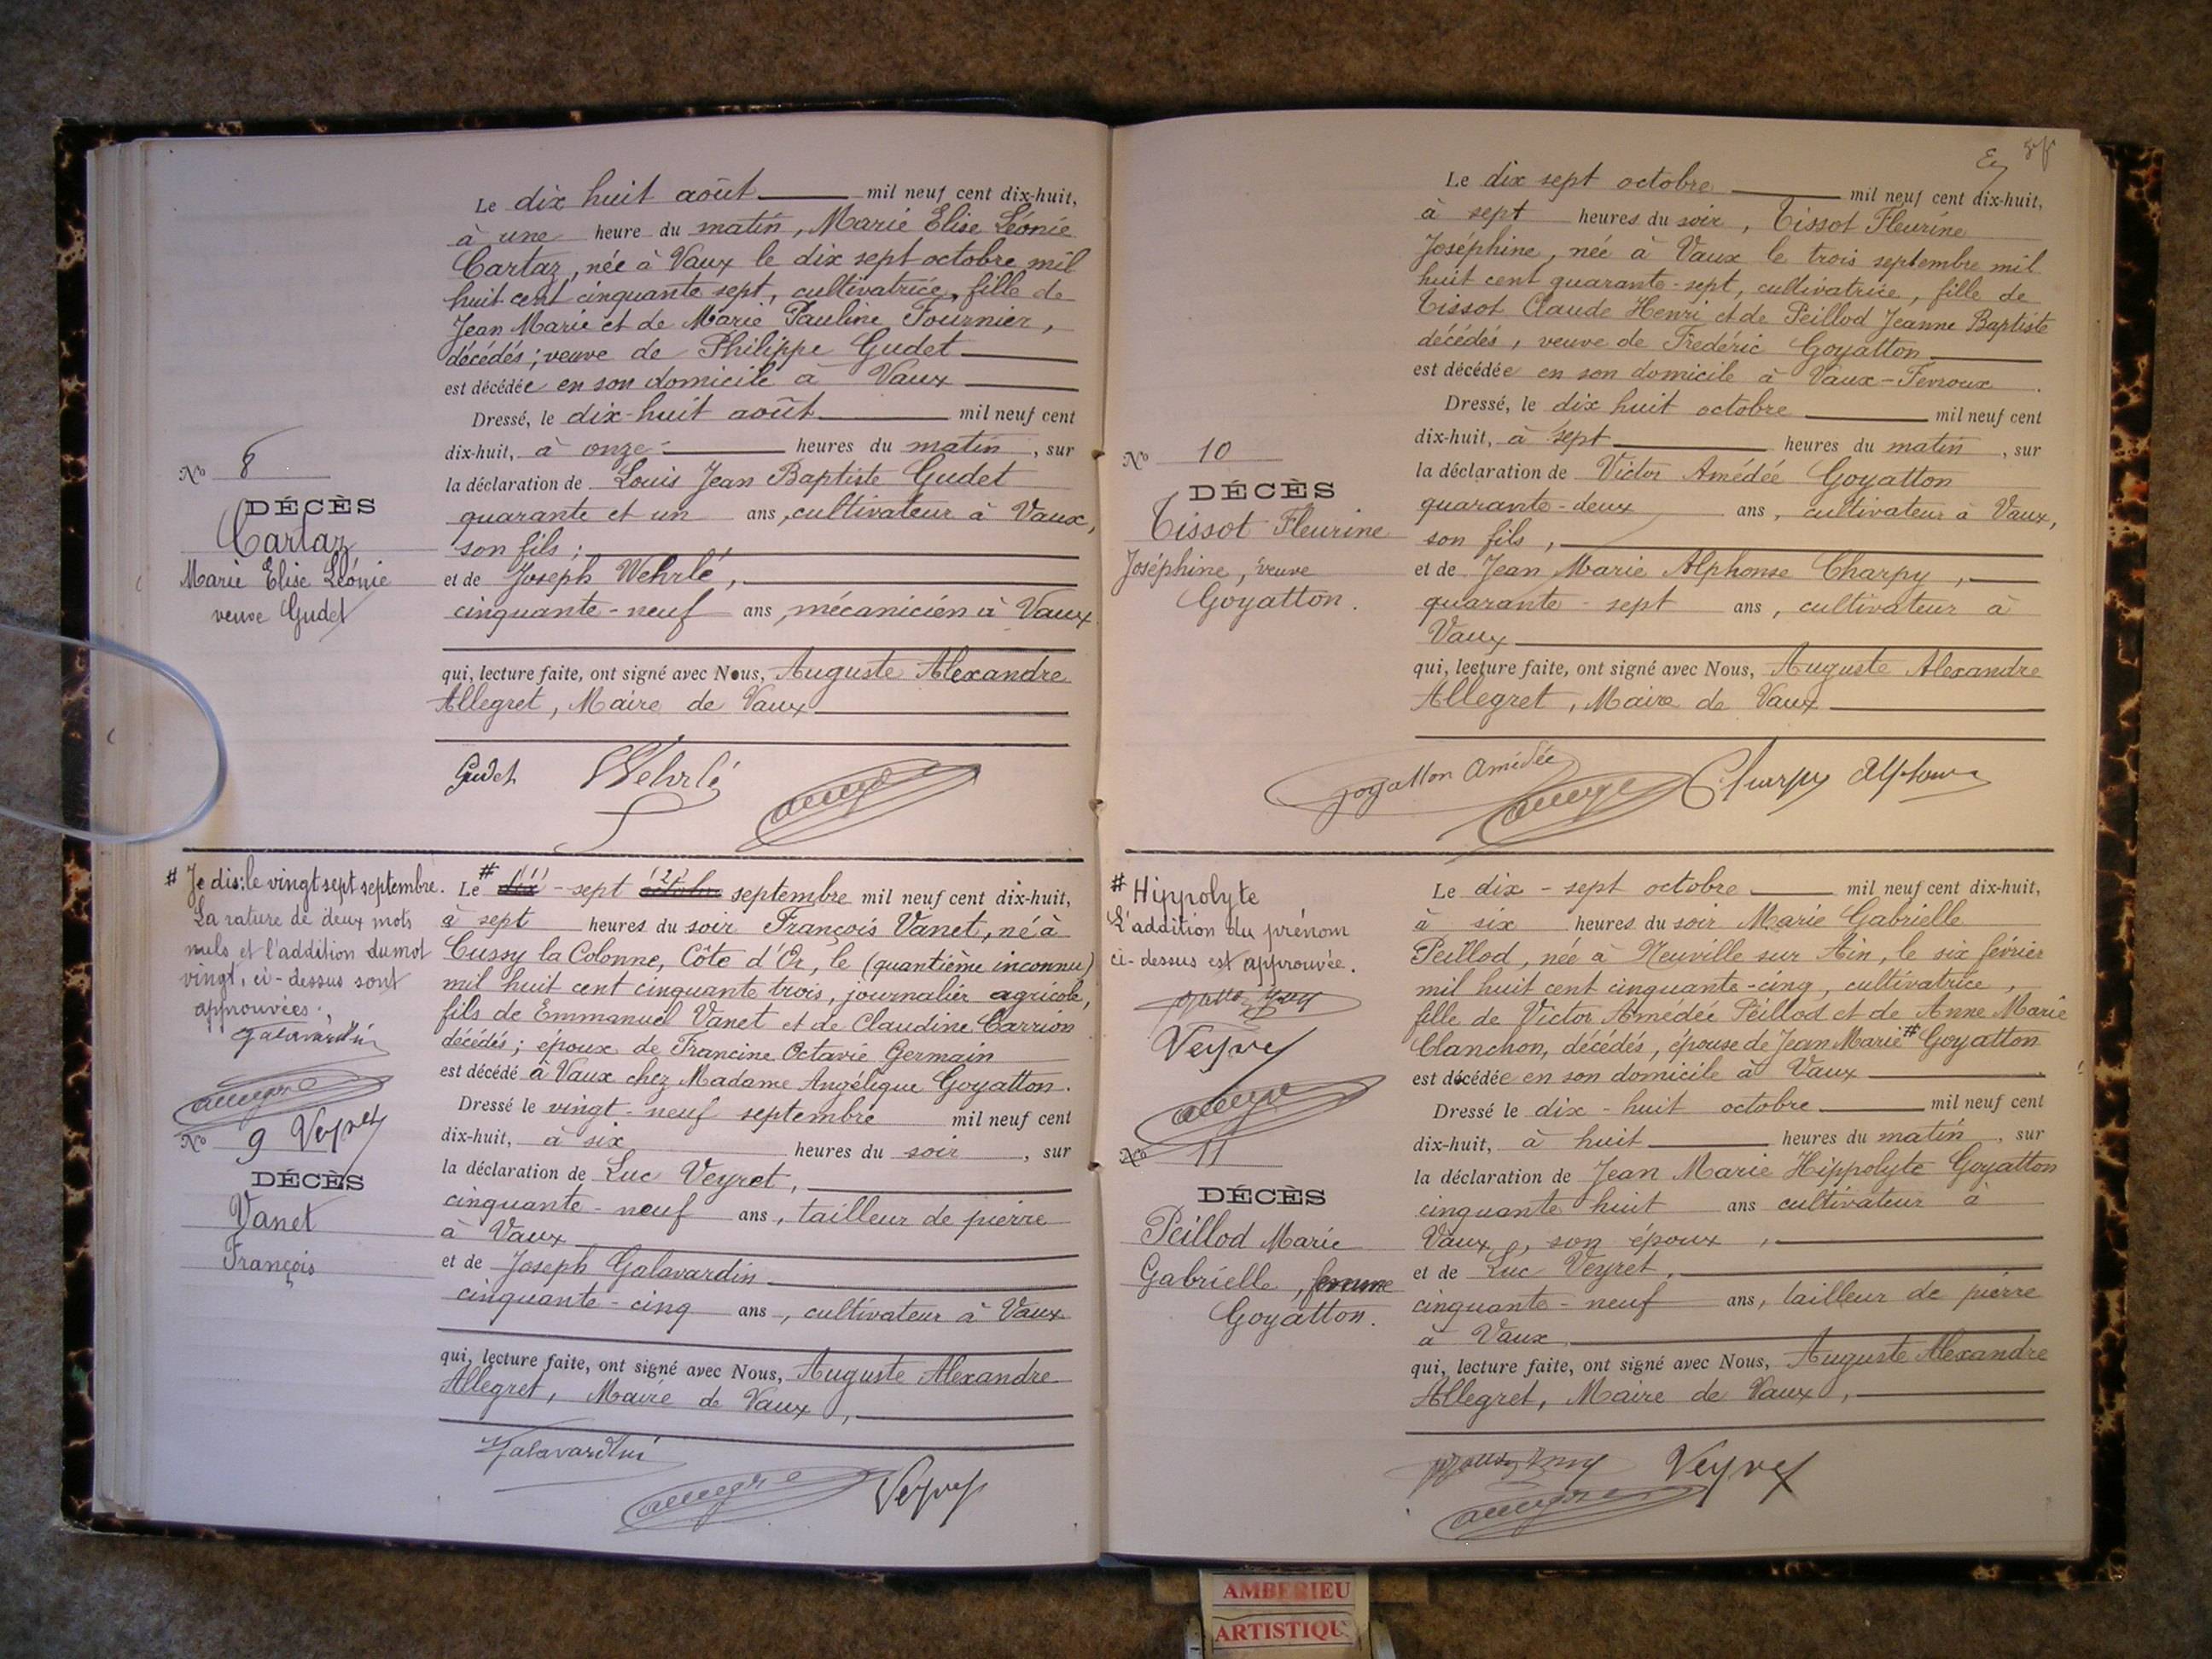 Le dix huit août mil neuf cent dix-huit,
à une heure du matin, Marie Elise Léonie
Cartaz, née à Vaux le dix sept octobre mil
huit cent cinquante sept, cultivatrice, fille de
Jean Marie et de Marie Pauline Fournier,
décédés; veuve de Philippe Gudet
est décédée en son domicile à Vaux
Dressé, le dix-huit août mil neuf cent
dix-huit, à onze heures du matin, sur
la déclaration de Louis Jean Baptiste Gudet
quarante et un ans, cultivateur à Vaux,
son fils;
et de Joseph Wehrlé,
cinquante-neuf ans, mécanicien à Vaux
qui, lecture faite, ont signé avec Nous, Auguste Alexandre
Allegret, Maire de Vaux
Gudet Wehrlé
No 8
DÉCÈS
Cartaz
Marie Elise Léonie
veuve Gudet
# Je dis: le vingt sept septembre.
La rature de deux mots
nuls et l'addition du mot
vingt, ci-dessus sont
approuvées.
Galavardin
Veyret
No 9
DÉCÈS
Vanet
François
Le # dix-sept octobre septembre mil neuf cent dix-huit,
à sept heures du soir François Vanet, né à
Cussy la Colonne, Côte d'Or, le (quantième inconnu)
mil huit cent cinquante trois, journalier agricole,
fils de Emmanuel Vanet et de Claudine Carrion
décédés; époux de Francine Octavie Germain
est décédé à Vaux chez Madame Angélique Goyatton.
Dressé le vingt-neuf septembre mil neuf cent
dix-huit, à six heures du soir, sur
la déclaration de Luc Veyret,
cinquante-neuf ans, tailleur de pierre
à Vaux
et de Joseph Galavardin
cinquante-cinq ans, cultivateur à Vaux
qui, lecture faite, ont signé avec Nous, Auguste Alexandre
Allegret, Maire de Vaux,
Galavardin
Veyret
Le dix sept octobre mil neuf cent dix-huit,
à sept heures du soir, Tissot Fleurine
Joséphine, née à Vaux le trois septembre mil
huit cent quarante-sept, cultivatrice, fille de
Tissot Claude Henri et de Peillod Jeanne Baptiste
décédés, veuve de Frédéric Goyatton
est décédée en son domicile à Vaux-Fevroux.
Dressé, le dix huit octobre mil neuf cent
dix-huit, à sept heures du matin, sur
la déclaration de Victor Amédée Goyatton
quarante-deux ans, cultivateur à Vaux,
son fils,
et de Jean Marie Alphonse Charpy,
quarante-sept ans, cultivateur à
Vaux
qui, lecture faite, ont signé avec Nous, Auguste Alexandre
Allegret, Maire de Vaux
Goyatton Amédée Charpy Alphonse
No 10
DÉCÈS
Tissot Fleurine
Joséphine, veuve
Goyatton.
# Hippolyte
L'addition du prénom
ci-dessus est approuvée.
Veyret
No 11
DÉCÈS
Peillod Marie
Gabrielle, femme
Goyatton.
Le dix-sept octobre mil neuf cent dix-huit,
à six heures du soir Marie Gabrielle
Peillod, née à Neuville sur Ain, le six février
mil huit cent cinquante-cinq, cultivatrice,
fille de Victor Amédée Peillod et de Anne Marie
Clanchon, décédés, épouse de Jean Marie # Goyatton
est décédée en son domicile à Vaux
Dressé le dix-huit octobre mil neuf cent
dix-huit, à huit heures du matin, sur
la déclaration de Jean Marie Hippolyte Goyatton
cinquante huit ans cultivateur à
Vaux, son époux,
et de Luc Veyret,
cinquante-neuf ans, tailleur de pierre
à Vaux
qui, lecture faite, ont signé avec Nous, Auguste Alexandre
Allegret, Maire de Vaux,
Veyret
AMBERIEU
ARTISTIQU